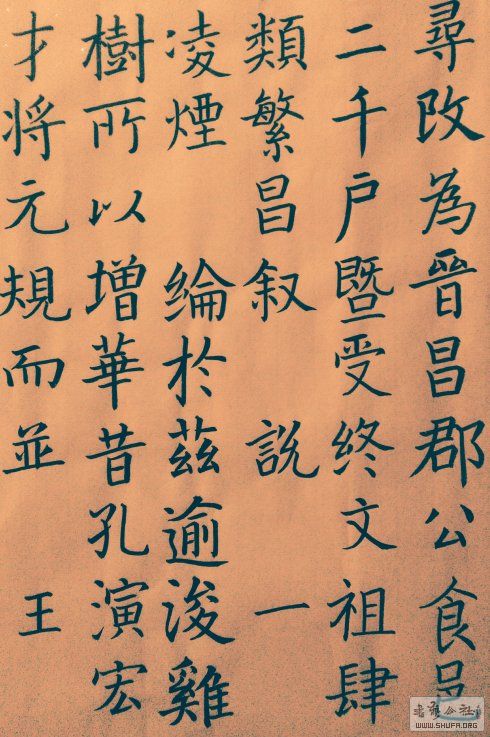 尋改為晉昌郡公食邑
二千户暨受終文祖肆
類繁昌叙 說 一
凌煙 綸於茲逾浚雞
樹所以增華昔孔演宏
才将元規而並 王
WWW.SHUFA.ORG